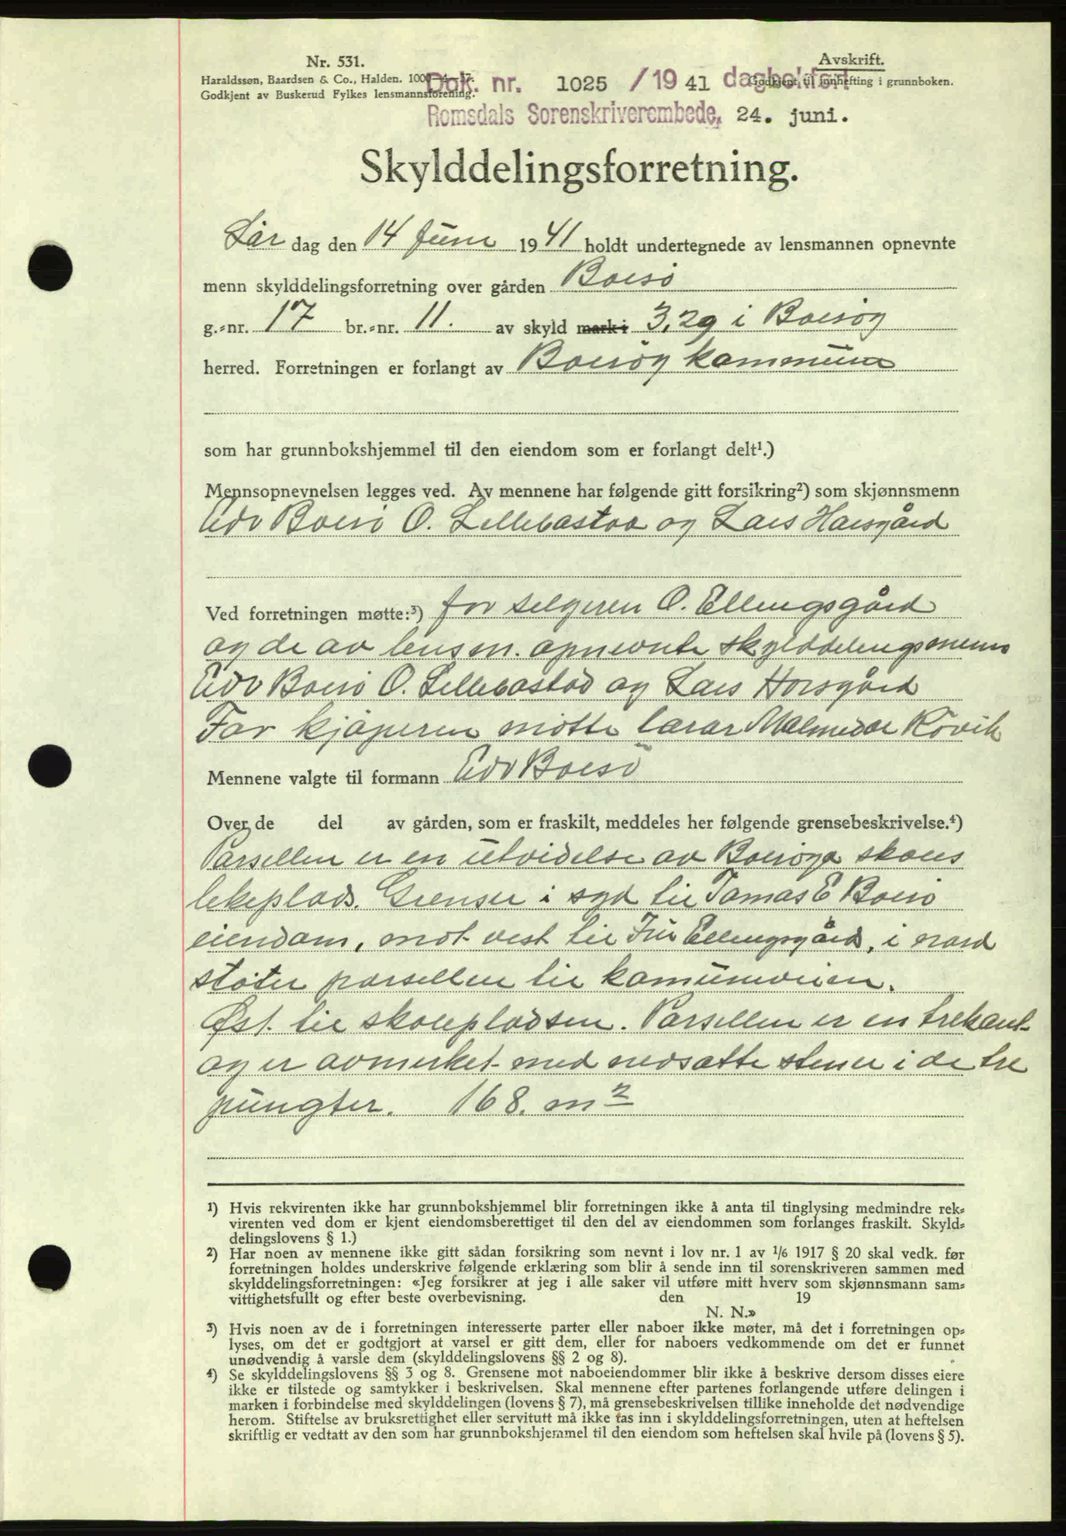 Nr. 531.
Haraldssøn, Baardsen & Co., Halden. 1000
Godkjent av Buskerud Fylkes lensmannsforening.
Avskrift.
Godkjent til innhefting i grunnboken.
Dok. nr. 1025 /19 41 dagbokført
Romsdals Sorenskriverembede, 24. juni.
Skylddelingsforretning.
Lår dag den 14 Juni 1941 holdt undertegnede av lensmannen opnevnte
menn skylddelingsforretning over gården Bolsö
g.=nr. 17 br.=nr. 11. av skyld mark i 3,29 i Bolsöy
herred. Forretningen er forlangt av Bolsöy kommune
som har grunnbokshjemmel til den eiendom som er forlangt delt¹.)
Mennsopnevnelsen legges ved. Av mennene har følgende gitt forsikring²) som skjønnsmenn
Edv Bolsö O. Lillebostad og Lars Horsgård
Ved forretningen møtte:³) for selgeren O. Ellingsgård
og de av lensm. opnevnte skylddelingsmenn
Edv Bolsö O. Lillebostad og Lars Horsgård
For kjöperen mötte lærar Malmedal Rövik
Mennene valgte til formann Edv Bolsö
Over de del av gården, som er fraskilt, meddeles her følgende grensebeskrivelse.⁴)
Parsellen er en utvidelse av Bolsöya skoles
lekeplads. Grenser i syd til Tomas E Bolsö
eiendom, mot vest til Fru Ellingsgård, i nord
stöter parsellen til komunveien.
Øst til skolepladsen. Parsellen er en trekant
og er avmerket med nedsatte stener i de tre
pungter. 168. m²
¹) Hvis rekvirenten ikke har grunnbokshjemmel blir forretningen ikke å anta til tinglysing medmindre rek=
virenten ved dom er kjent eiendomsberettiget til den del av eiendommen som forlanges fraskilt. Skyld=
delingslovens § 1.)
²) Har noen av mennene ikke gitt sådan forsikring som nevnt i lov nr. 1 av 1/6 1917 § 20 skal vedk. før
forretningen holdes underskrive følgende erklæring som blir å sende inn til sorenskriveren sammen med
skylddelingsforretningen: «Jeg forsikrer at jeg i alle saker vil utføre mitt hverv som skjønnsmann sam=
vittighetsfullt og efter beste overbevisning. den 19
N. N.»
³) Hvis noen av de i forretningen interesserte parter eller naboer ikke møter, må det i forretningen op=
lyses, om det er godtgjort at varsel er gitt dem, eller for naboers vedkommende om det er funnet
unødvendig å varsle dem (skylddelingslovens §§ 2 og 8).
⁴) Se skylddelingslovens §§ 3 og 8. Grensene mot naboeiendommer blir ikke å beskrive dersom disses eiere
ikke er tilstede og samtykker i beskrivelsen. Skal mennene efter partenes forlangende utføre delingen i
marken i forbindelse med skylddelingen (lovens § 7), må grensebeskrivelsen tillike inneholde det nødvendige
herom. Stiftelse av bruksrettighet eller servitutt må ikke tas inn i skylddelingsforretningen, uten at heftelsen
skriftlig er vedtatt av den som har grunnbokshjemmel til den eiendom som heftelsen skal hvile på (lovens § 5).